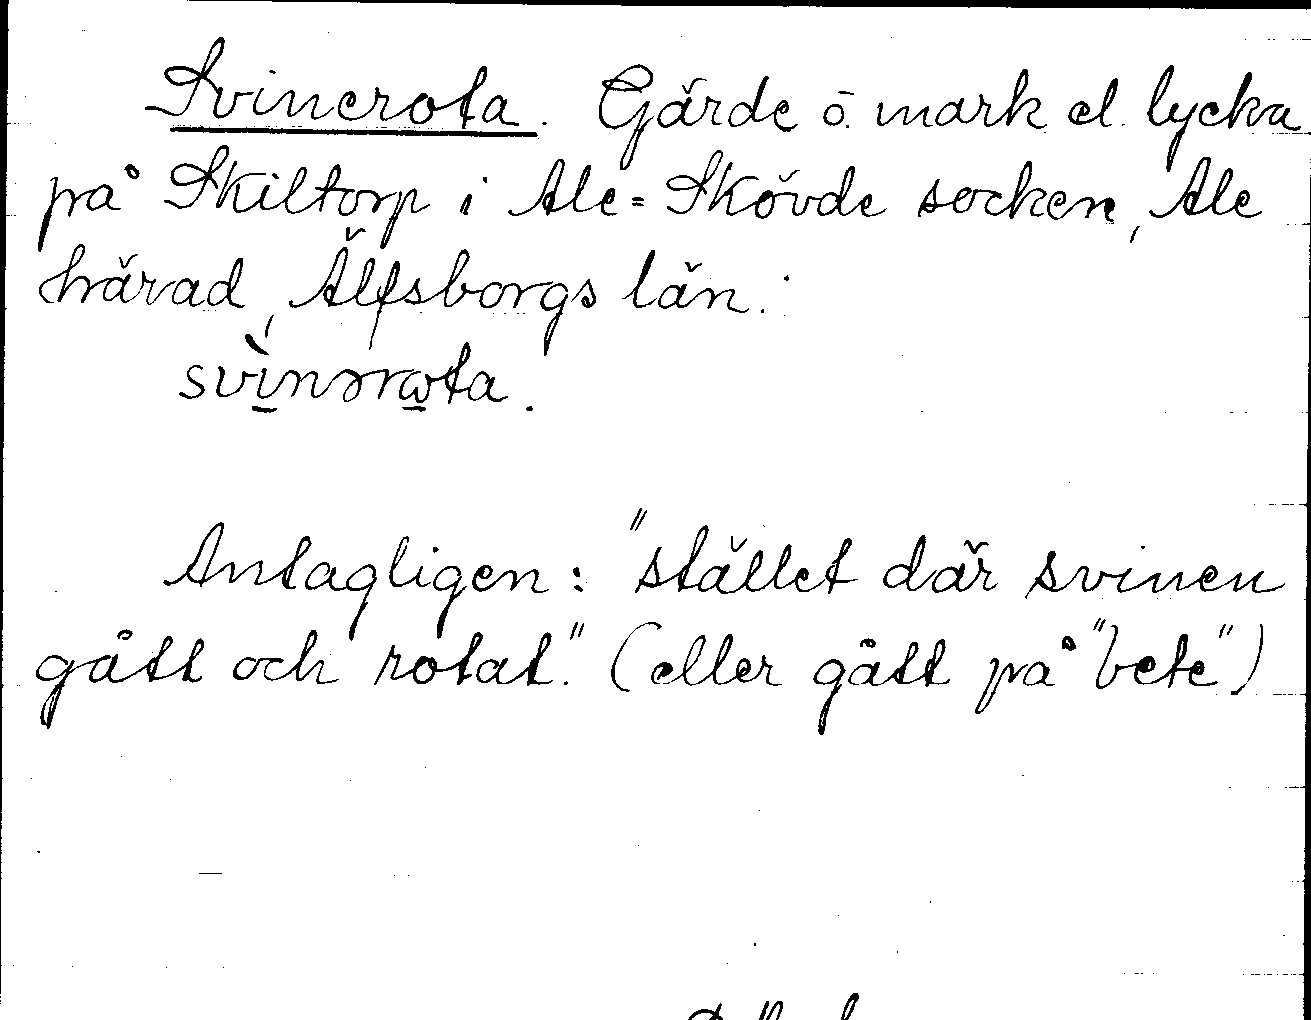 Svinerota. Gärde o. mark el. lycka
på Skiltorp i Ale=Skövde socken, Ale
härad, Älfsborgs län.
svìnərꞷta.
Antagligen: "stället där svinen
gått och rotat." (eller gått på "bete")